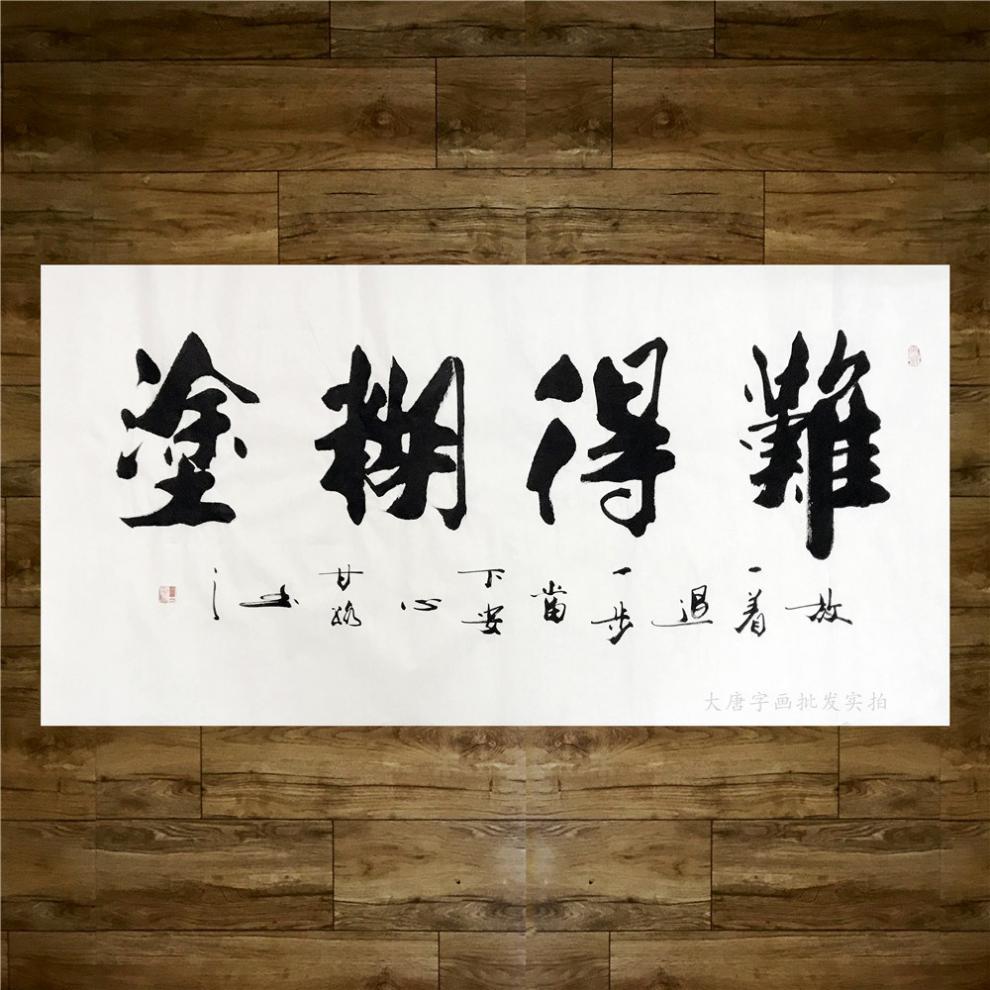 難得糊塗
放一着退一步當下安心
甘
大唐字画批发实拍